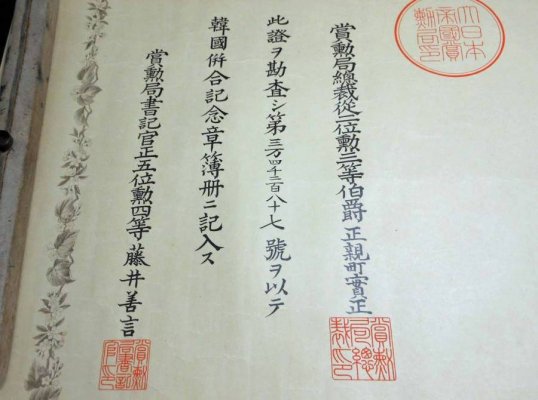 大日本帝國賞勳局印
賞勳局總裁從二位勳三等伯爵正親町實正
賞勳局總裁印
此證ヲ勘査シ第三万四千二百八十七號ヲ以テ
韓國倂合記念章簿冊ニ記入ス
賞勳局書記官正五位勳四等藤井善言
賞勳局書記官印